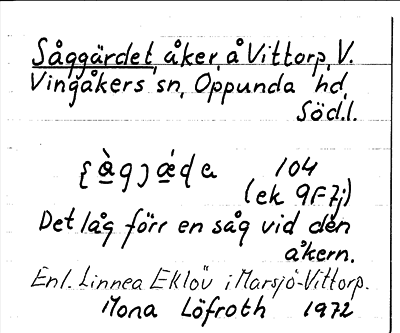 Såggärdet, åker, å Vittorp, V.
Vingåkers sn, Oppunda hd,
Söd.l.
104
(ek 9F7j)
Det låg förr en såg vid den
åkern.
Enl. Linnea Eklöv i Marsjö-Vittorp.
Mona Löfroth 1972